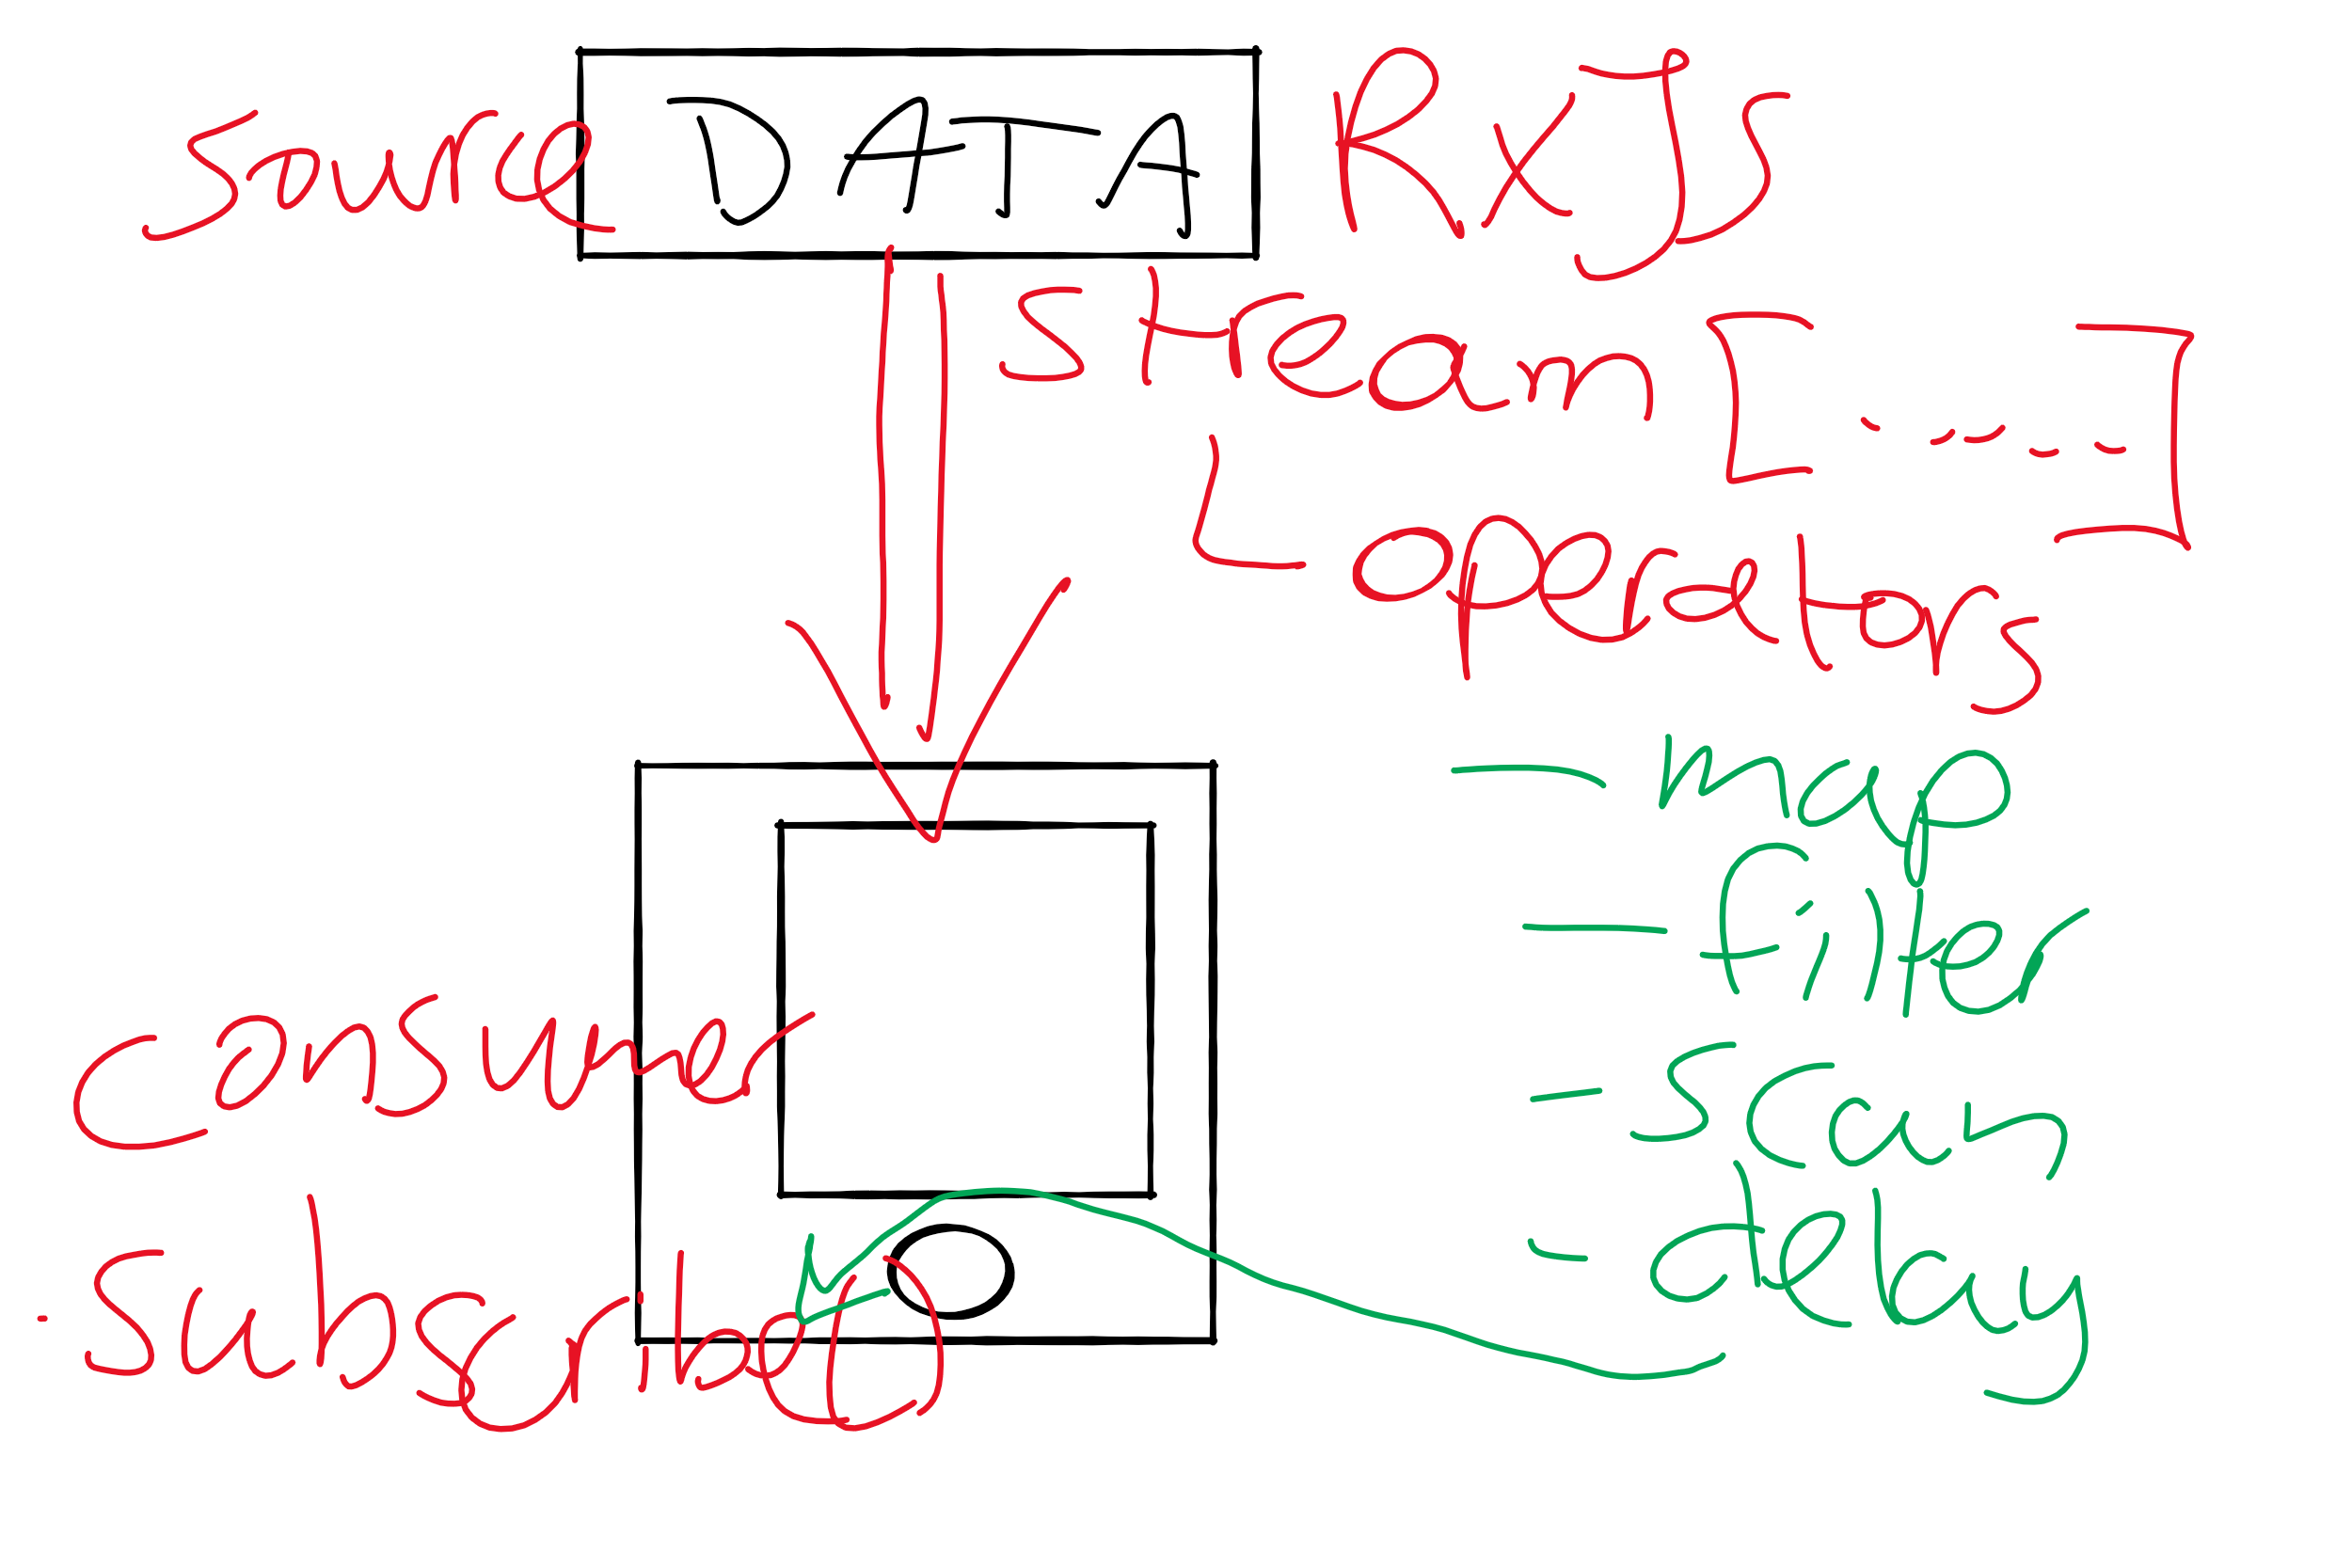 source DATA RxJS
stream [ ]
operators
- map
- filter
- scan
- delay
consumer
- subscribe()